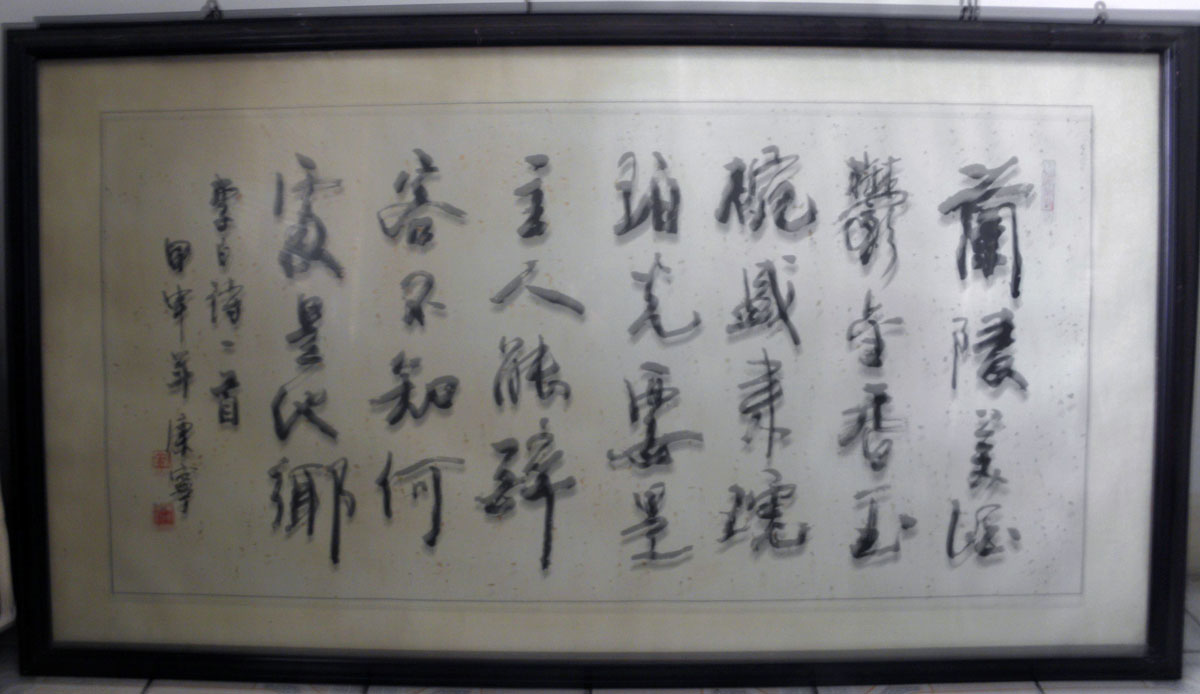 蘭陵美酒
鬱金香玉
椀盛来琥
珀光要是
主人能醉
客不知何
處是他鄉
李白詩一首
甲申年康寧